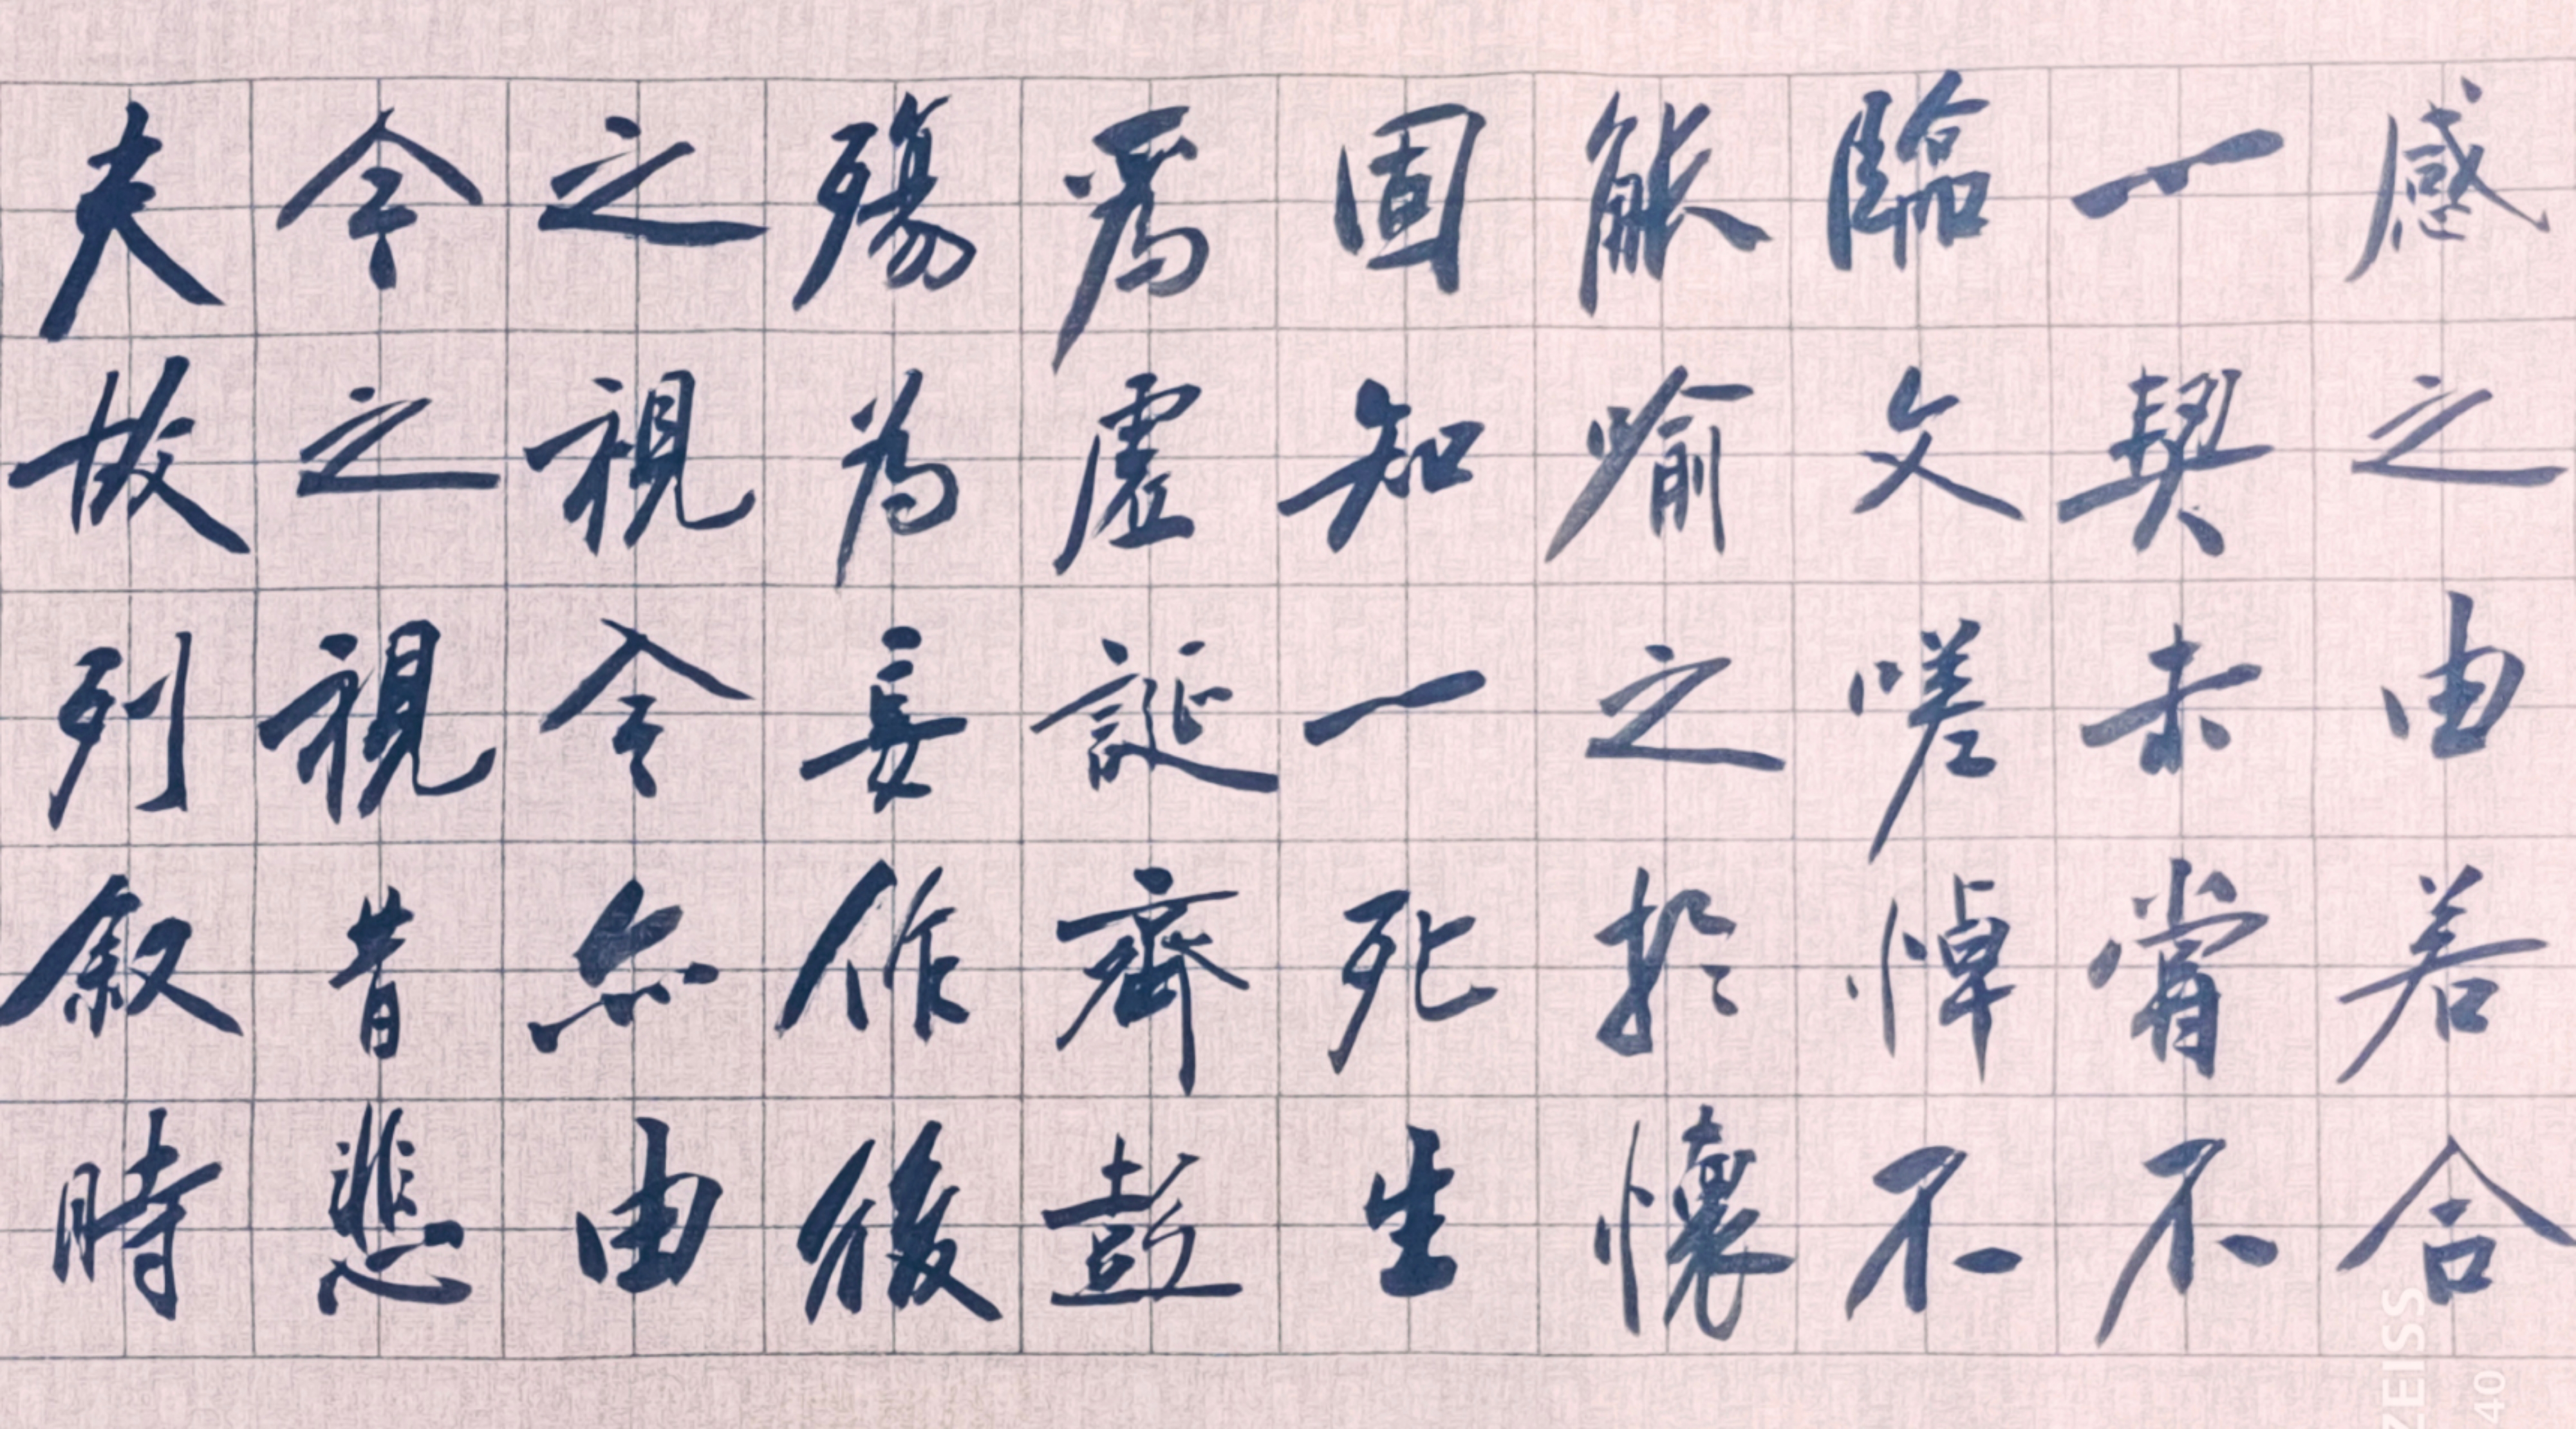 感之由若合
一契未嘗不
臨文嗟悼不
能喻之於懷
固知一死生
爲虛誕齊彭
殤為妄作後
之視今亦由
今之視昔悲
夫故列叙時
ZEISS
40